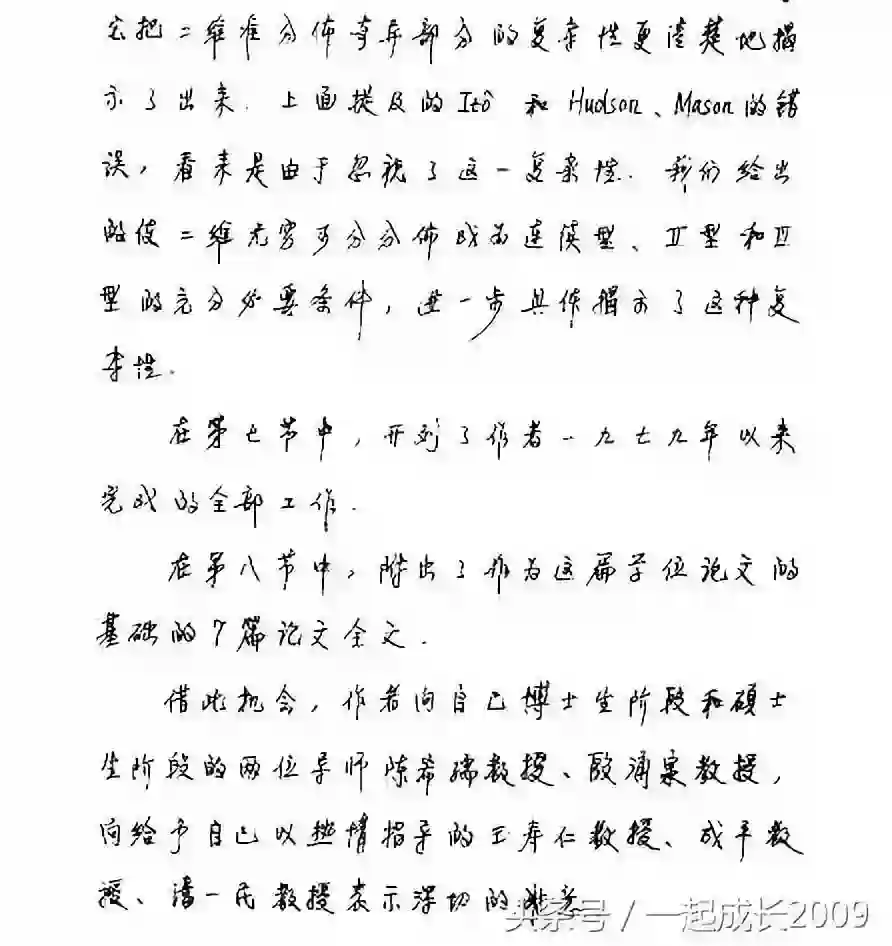 它把二维准分佈奇异部分的复杂性更清楚地揭
示了出来. 上面提及的Itô 和 Hudson、Mason的错
误，看来是由于忽视了这一复杂性. 我们给出
的使二维无穷可分分佈成为连续型、II型和III
型的充分必要条件，进一步具体揭示了这种复
杂性.
在第七节中，开列了作者一九七九年以来
完成的全部工作.
在第八节中，附出了作为这篇学位论文的
基础的7篇论文全文.
借此机会，作者向自己博士生阶段和硕士
生阶段的两位导师陈希孺教授、殷涌泉教授，
向给予自己以热情指导的王寿仁教授、成平教
授、潘一民教授表示深切的谢意
头条号 / 一起成长2009